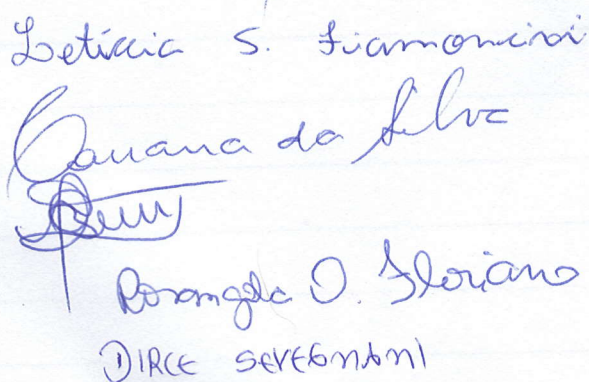 Letíccia S. Fiamoncini
da Silva
Rosangela O. Floriano
DIRCE SEVEGNANI